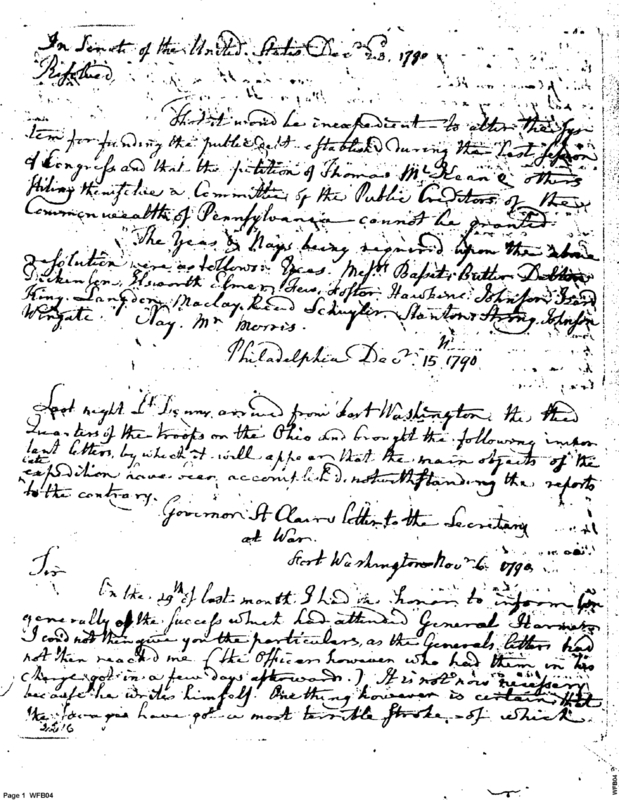 In Senate of the United States Decr 23d 1790
Resolved
That it would be inexpedient to alter the Sys
tem for funding the public debt established during the last session
of Congress and that the petition of Thomas McKean & others
stiling themselves a Committee of the Public Creditors of the
Commonwealth of Pennsylvania cannot be granted
The Yeas & Nays being required upon the above
resolution were as follows: Yeas. Messrs Bassett Butler Dalton
Dickenson, Elsworth Elmer, Few, Foster Hawkins Johnson Izard
King Langdon Maclay, Read Schuyler Stanton Strong Johnson
Wingate. Nay. Mr Morris.
Philadelphia Decr 15th 1790
Last night Lt Denny arrived from fort Washington the Head
Quarters of the troops on the Ohio and brought the following impor
tant letters, by which it will appear that the main objects of the
late
expedition have been accomplished notwithstanding the reports
to the contrary.
Governor St Clairs letter to the Secretary
at War.
Fort Washington Novr 6 1790
Sir
On the 29th of last month I had the honor to inform you
generally of the success which had attended General Harmar
I could not then give you the particulars, as the Generals letters had
not then reached me (the Officer however who had them in his
charge got in a few days afterwards.) It is not now necessary
because he writes himself. One thing however is certain that
the savages have got a most terrible stroke of which
Page 1 WFB04
WFB04